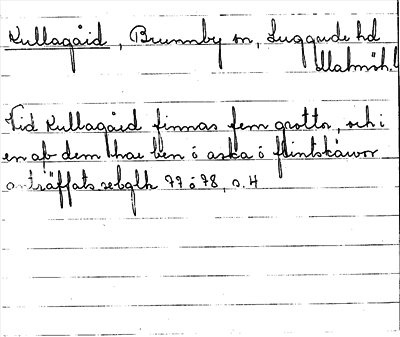 Kullagård, Brunnby sn, Luggude hd
Malmöh.l
Vid Kullagård finnas fem grottor, och i
en af dem har ben o aska o flintskärvor
anträffats 77 o 78, s. 4